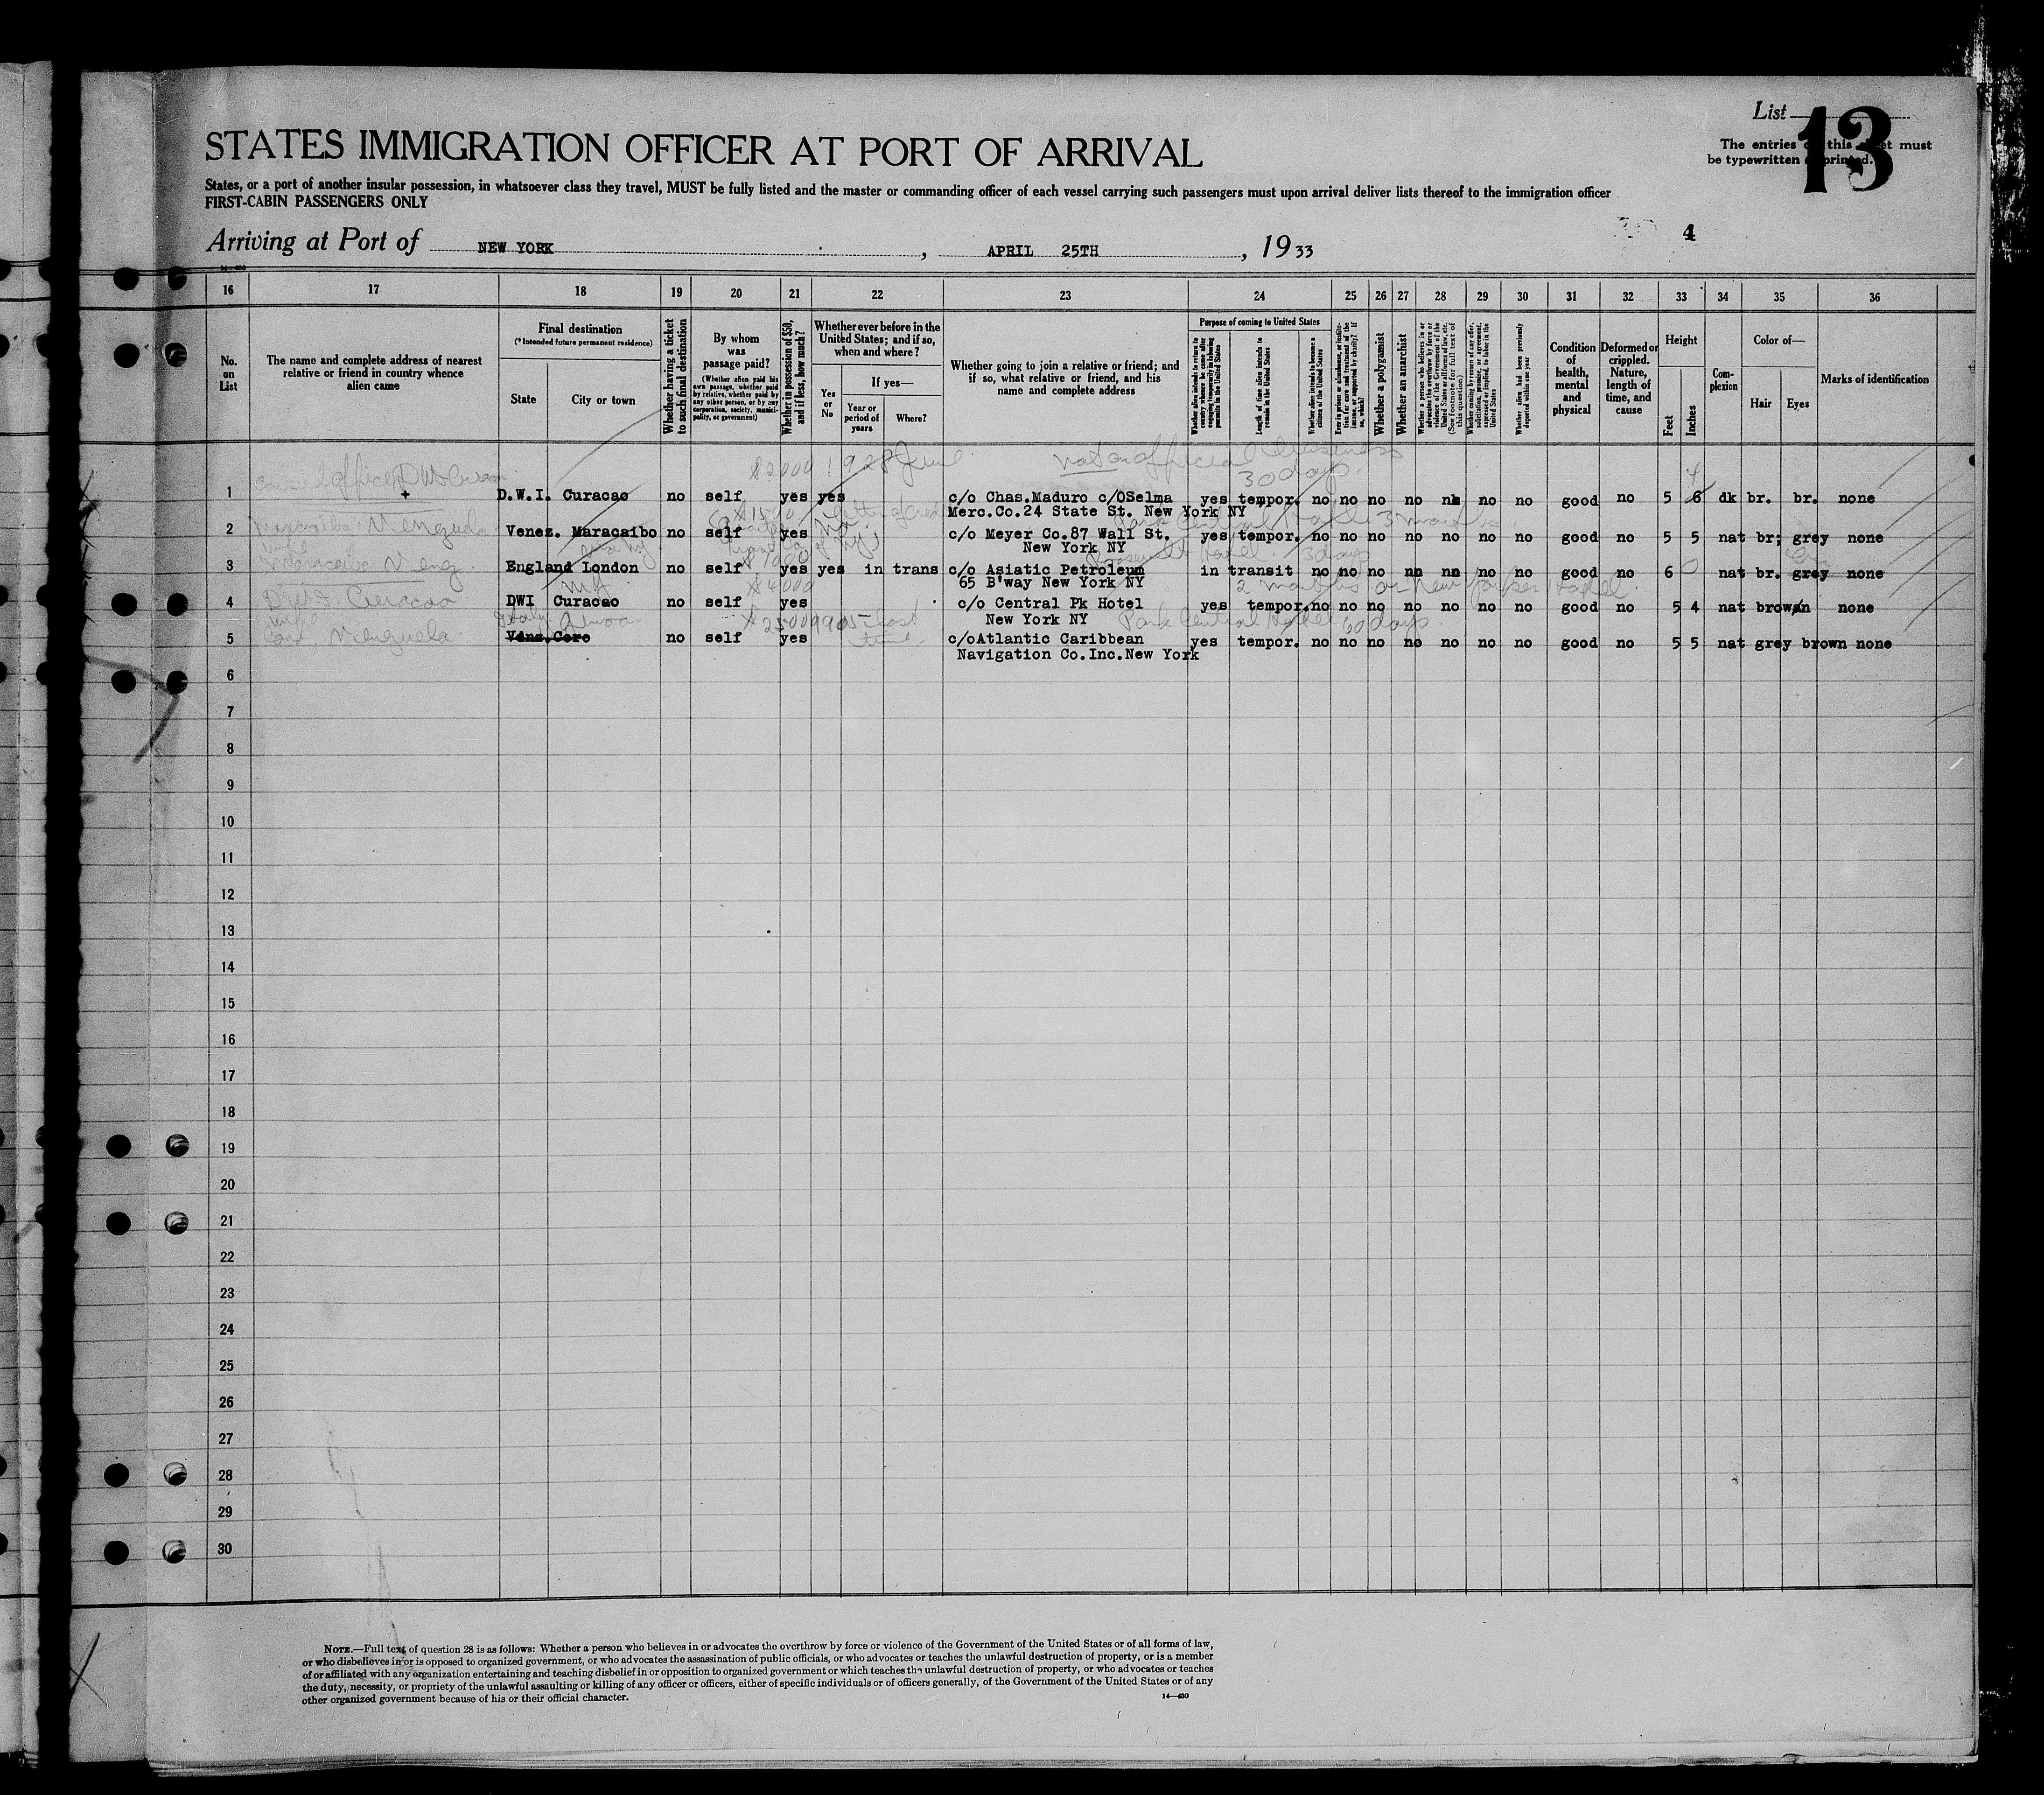 List
13
The entries on this sheet must
be typewritten or printed.
STATES IMMIGRATION OFFICER AT PORT OF ARRIVAL
States, or a port of another insular possession, in whatsoever class they travel, MUST be fully listed and the master or commanding officer of each vessel carrying such passengers must upon arrival deliver lists thereof to the immigration officer
FIRST-CABIN PASSENGERS ONLY
4
Arriving at Port of NEW YORK , APRIL 25TH , 1933
16 17 18 19 20 21 22 23 24 25 26 27 28 29 30 31 32 33 34 35 36
No. on List
The name and complete address of nearest relative or friend in country whence alien came
Final destination
(*Intended future permanent residence)
State
City or town
Whether having a ticket to such final destination
By whom was passage paid?
(Whether alien paid his own passage, whether paid by relative, whether paid by any other person, or by any corporation, society, municipality, or government)
Whether in possession of $50, and if less, how much?
Whether ever before in the United States; and if so, when and where?
Yes or No
If yes—
Year or period of years
Where?
Whether going to join a relative or friend; and if so, what relative or friend, and his name and complete address
Purpose of coming to United States
Whether alien intends to return to country whence he came after engaging temporarily in laboring pursuits in the United States
Length of time alien intends to remain in the United States
Whether alien intends to become a citizen of the United States
Ever in prison or almshouse, or institution for care and treatment of the insane, or supported by charity? If so, which?
Whether a polygamist
Whether an anarchist
Whether a person who believes in or advocates the overthrow by force or violence of the Government of the United States or all forms of law, etc. (See footnote for full text of this question.)
Whether coming by reason of any offer, solicitation, promise, or agreement, expressed or implied, to labor in the United States
Whether alien had been previously deported within one year
Condition of health, mental and physical
Deformed or crippled. Nature, length of time, and cause
Height
Feet
Inches
Complexion
Color of—
Hair
Eyes
Marks of identification
$2000 1928 June not on official business
30 days. 4
1 + D.W.I. Curacao no self yes yes c/o Chas.Maduro c/OSelma yes tempor. no no no no no no no good no 5 6 dk br. br. none
Merc.Co.24 State St. New York NY
Maracaibo Venezuela $1500 letter of cred Park Central Hotel 3 months
2 Venez. Maracaibo no self yes c/o Meyer Co.87 Wall St. yes tempor. no no no no no no no good no 5 5 nat br; grey none
New York NY
Maracaibo Venez. $1000 Roosevelt Hotel. 30 days
3 England London no self yes yes in trans c/o Asiatic Petroleum in transit no no no no no no no good no 6 nat br. grey none
65 B'way New York NY
DWI Curacao $4000 2 months or New Yorker Hotel.
4 DWI Curacao no self yes c/o Central Pk Hotel yes tempor.no no no no no no no good no 5 4 nat brown none
New York NY
wife Italy Genoa $2500 1905 last Park Central Hotel 60 days.
Venezuela time
5 Venz.Coro no self yes c/oAtlantic Caribbean yes tempor. no no no no no no no good no 5 5 nat grey brown none
Navigation Co.Inc.New York
6
7
8
9
10
11
12
13
14
15
16
17
18
19
20
21
22
23
24
25
26
27
28
29
30
NOTE.—Full text of question 28 is as follows: Whether a person who believes in or advocates the overthrow by force or violence of the Government of the United States or of all forms of law,
or who disbelieves in or is opposed to organized government, or who advocates the assassination of public officials, or who advocates or teaches the unlawful destruction of property, or is a member
of or affiliated with any organization entertaining and teaching disbelief in or opposition to organized government or which teaches the unlawful destruction of property, or who advocates or teaches
the duty, necessity, or propriety of the unlawful assaulting or killing of any officer or officers, either of specific individuals or of officers generally, of the Government of the United States or of any
other organized government because of his or their official character.
14—430